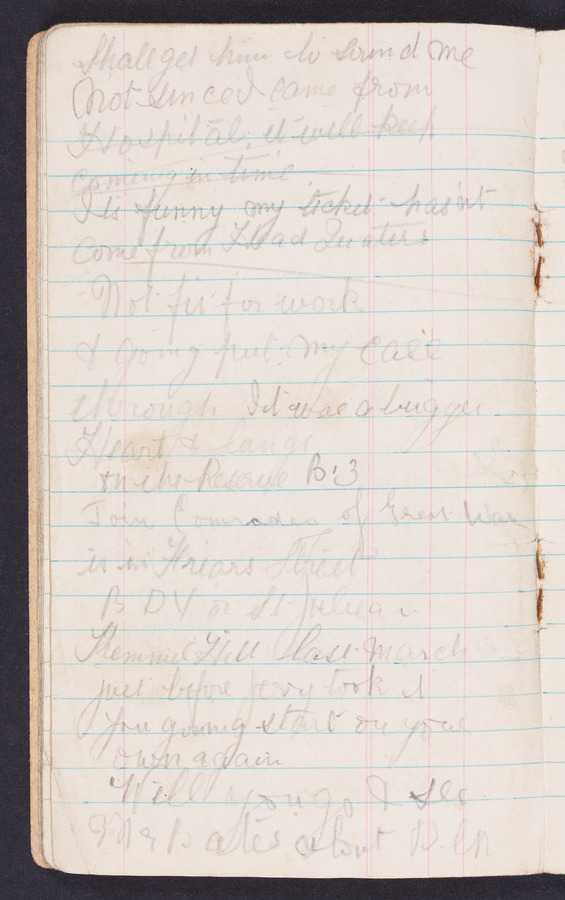 Shall get him to sound me
Not since I came from
Hospital, it will keep
coming in time
It is funny my ticket hasn't
come from Head Quaters
Not fit for work
& going put my case
through I it was a bugger
Heart & lungs
in the Reserve B.3
Join Comrades of Great War
is in Friars Street
B D V or St Julian
Kemmel Hill last March
just before Jerry took it
you going start on your
own again
Will you go & see
Mr Bates about